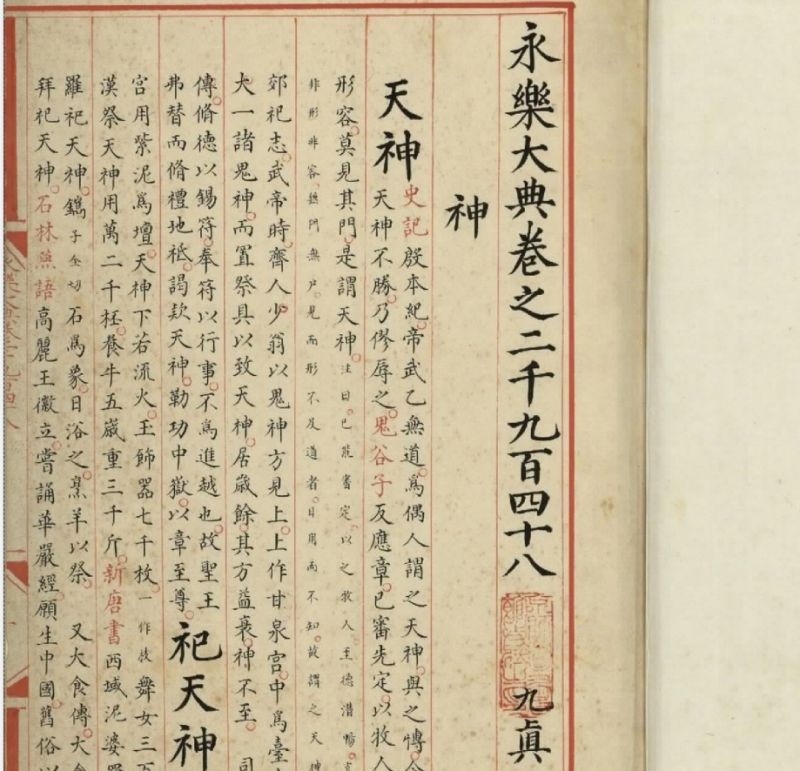 永樂大典卷之二千九百四十八 九真
神
天神
史記殷本紀。帝武乙無道。為偶人謂之天神。與之博。令
天神不勝。乃僇辱之。鬼谷子反應章。已審先定。以牧人
形容。莫見其門。是謂天神。注曰。已能審定。以之牧人。至德潛暢。
非形非容。無門無戶。見而形不及道者。日用而不知。故謂之天神
郊祀志。武帝時。齊人少翁以鬼神方見上。上作甘泉宮。中為臺
大一諸鬼神。而置祭具以致天神。居歲餘。其方益衰。神不至。 司
傳。脩德以錫符。奉符以行事。不為進越也。故聖王
弗替而脩禮地祇。謁款天神。勒功中嶽。以章至尊。
祀天神
宮用紫泥為壇。天神下若流火。玉飾器七千枚。一作枝舞女三百
漢祭天神用萬二千杯。養牛五歲重三千斤。新唐書西域泥婆羅
羅祀天神。鐫子全切石為象。日浴之。烹羊以祭。 又大食傳。大食
拜祀天神。石林燕語高麗王徽立。嘗誦華嚴經。願生中國。舊俗以